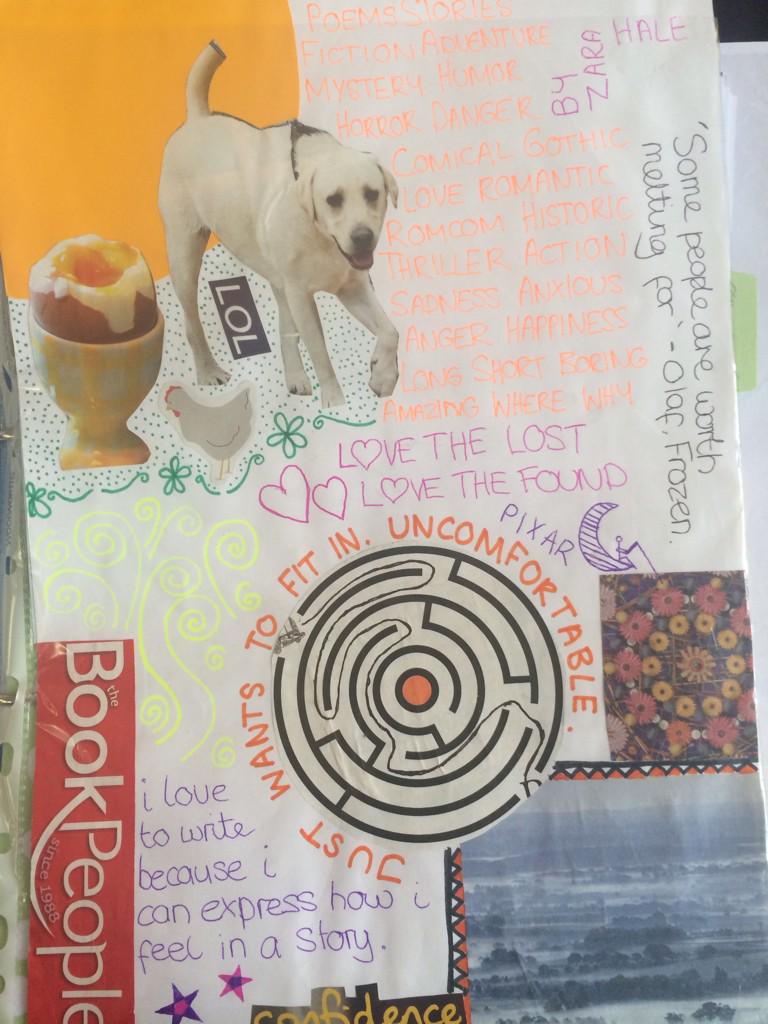 POEMS STORIES
FICTION ADVENTURE
MYSTERY HUMOR
HORROR DANGER
COMICAL GOTHIC
LOVE ROMANTIC
ROMCOM HISTORIC
THRILLER ACTION
SADNESS ANXIOUS
ANGER HAPPINESS
LONG SHORT BORING
AMAZING WHERE WHY
BY
ZARA
HALE
'Some people are worth
melting for' - Olaf, Frozen.
LOL
LOVE THE LOST
LOVE THE FOUND
PIXAR
JUST WANTS TO FIT IN. UNCOMFORTABLE.
the
BOOKPEOPLE
since 1988
i love
to write
because i
can express how i
feel in a story.
confidence